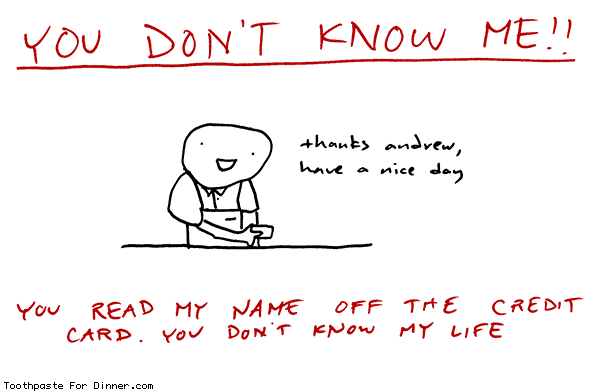 YOU DON'T KNOW ME!!
thanks andrew,
have a nice day
YOU READ MY NAME OFF THE CREDIT
CARD. YOU DON'T KNOW MY LIFE
Toothpaste For Dinner.com